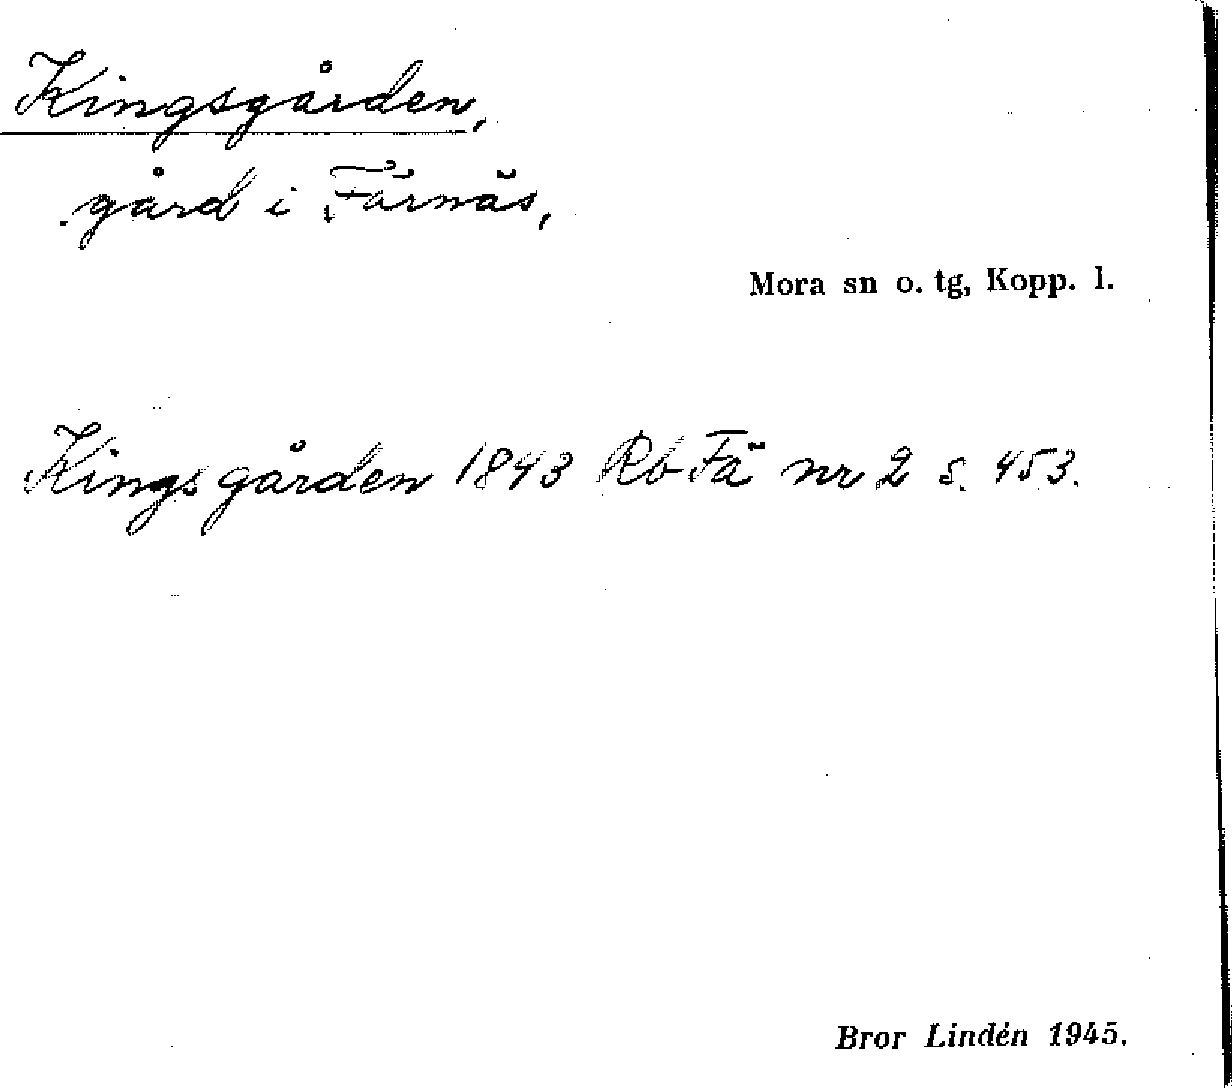 Kingsgården,
gård i Färnäs,
Mora sn o. tg, Kopp. l.
Kingsgården 1843 Rb Fä nr 2 s. 453.
Bror Lindén 1945.